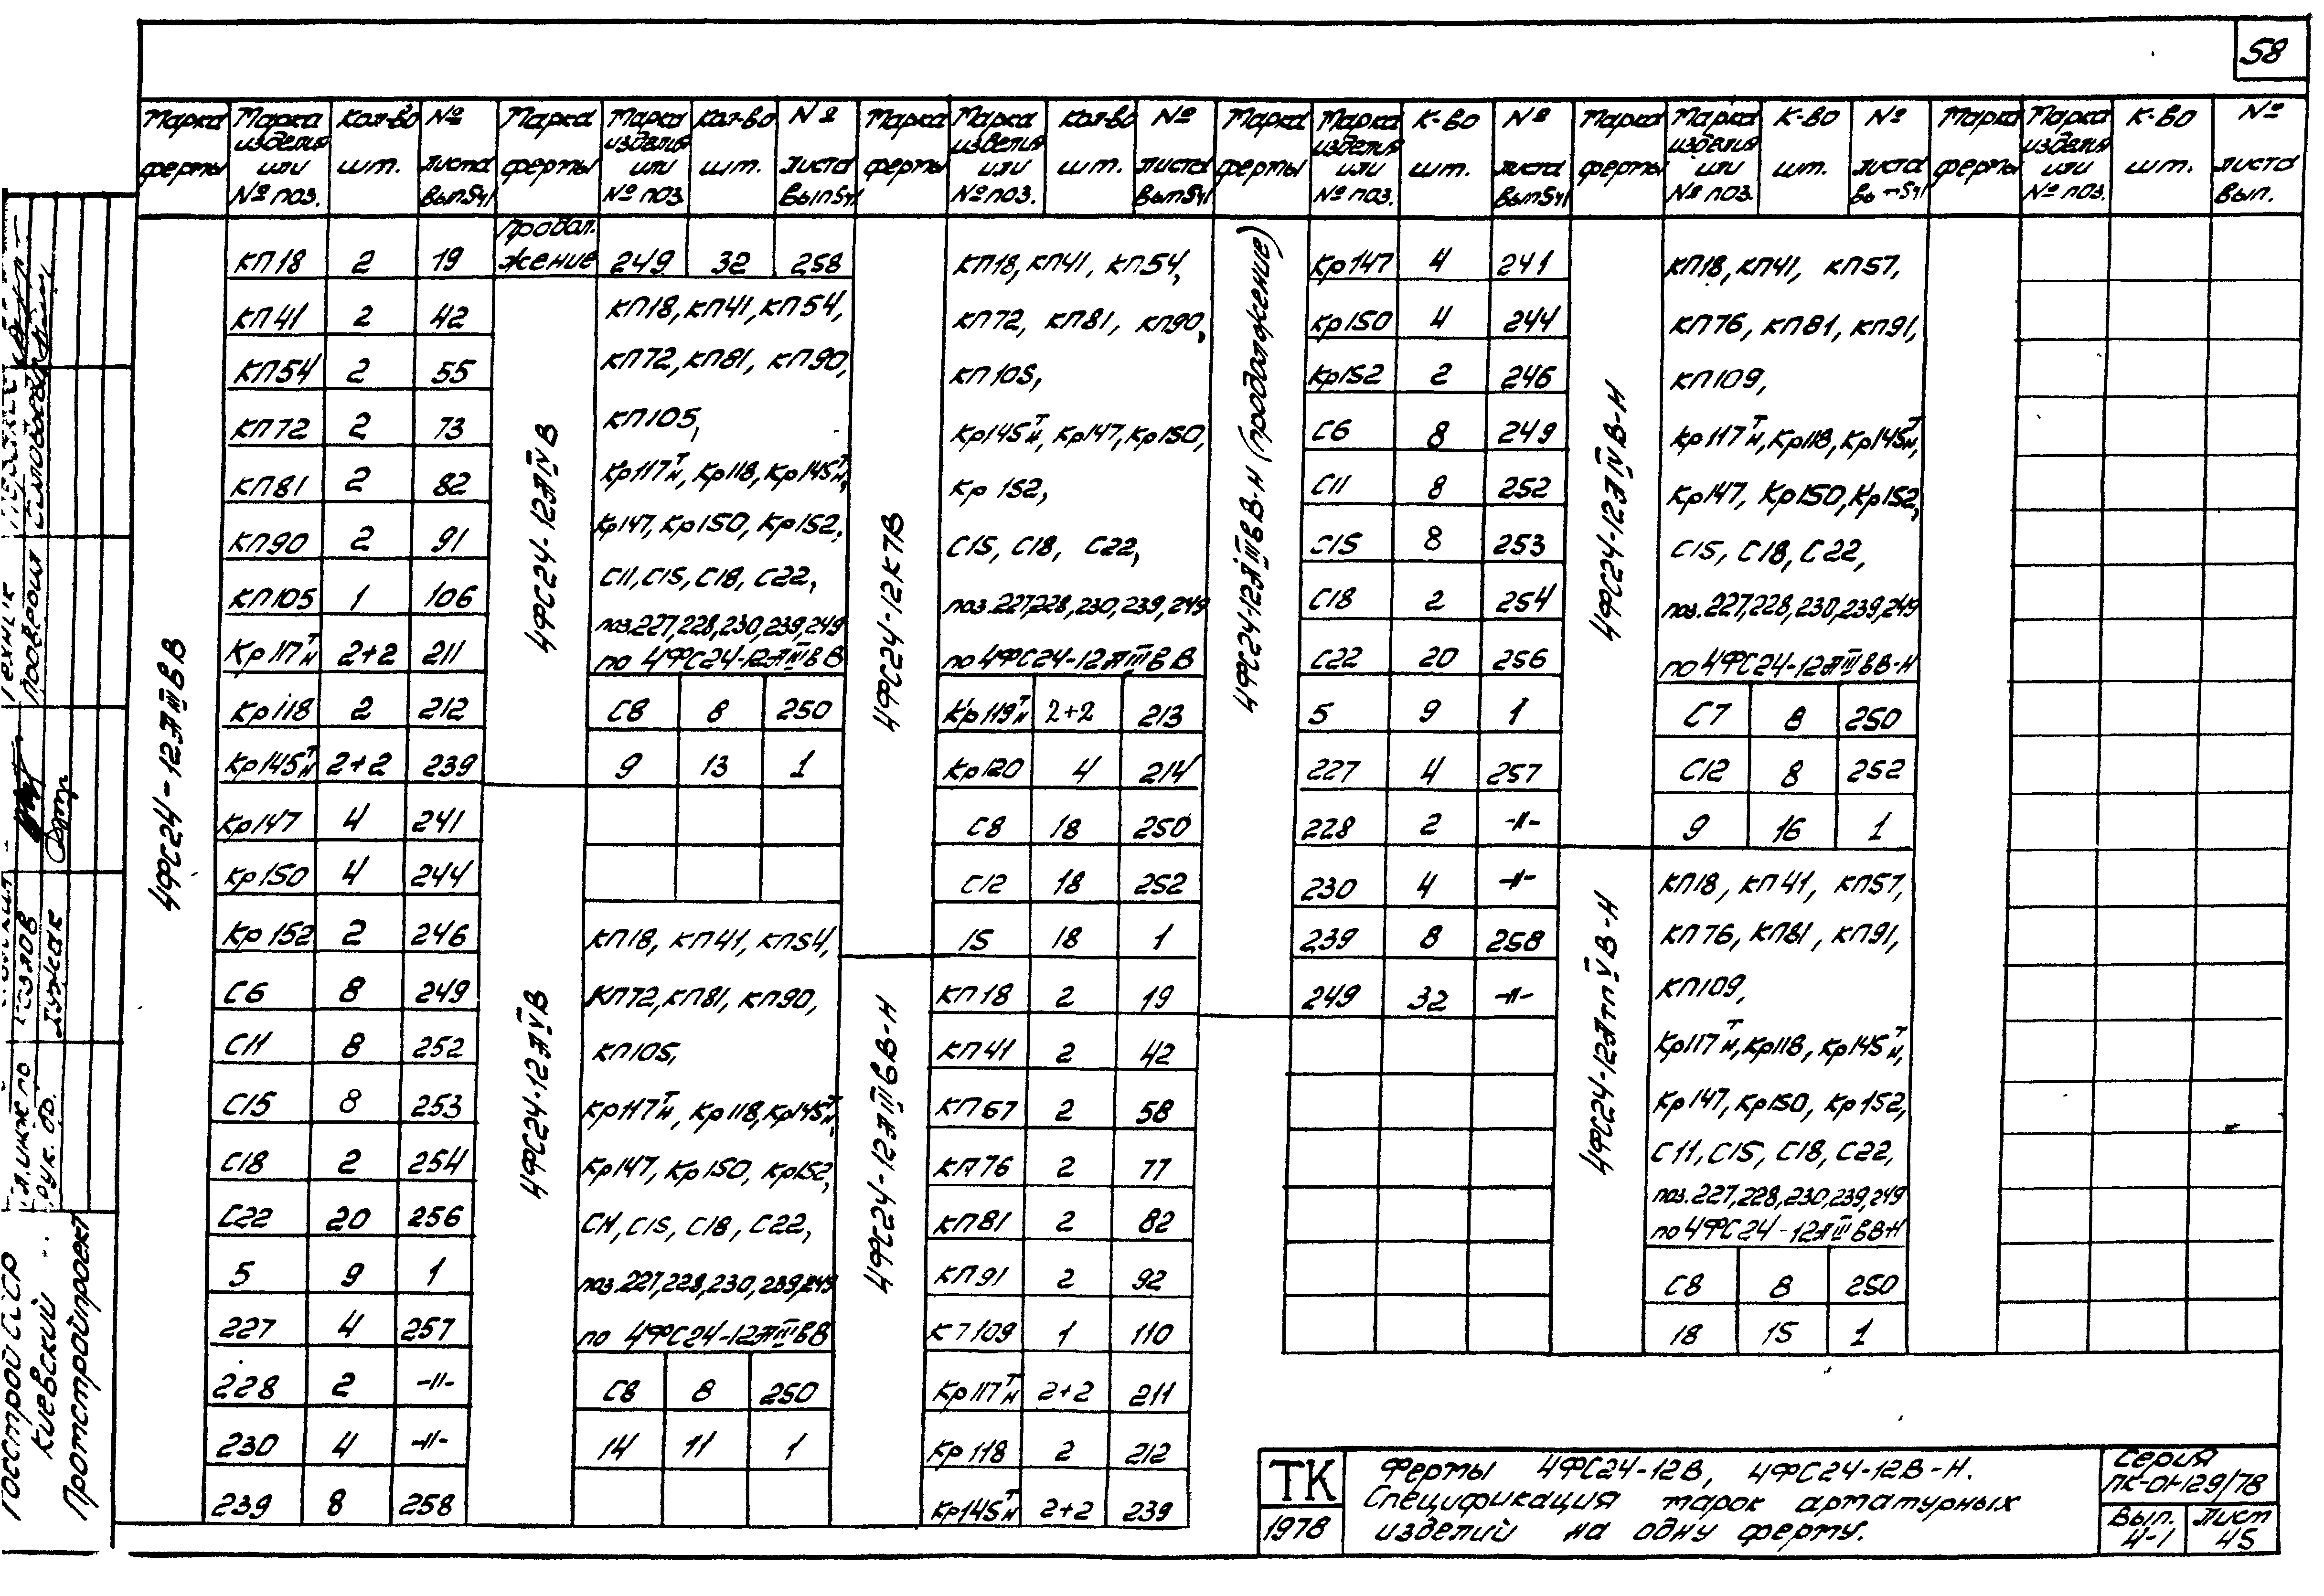 58
Марка фермы | Марка изделия или № поз. | Кол-во шт. | № листа вып 5ч1 | Марка фермы | Марка изделия или № поз. | Кол-во шт. | № листа вып 5ч1 | Марка фермы | Марка изделия или № поз. | Кол-во шт. | № листа вып 5ч1 | Марка фермы | Марка изделия или № поз. | К-во шт. | № листа вып 5ч1 | Марка фермы | Марка изделия или № поз. | К-во шт. | № листа | Марка фермы | Марка изделия или № поз. | К-во шт. | № листа вып.
4ФС24-12АIIIвВ
КП18 2 19
КП41 2 42
КП54 2 55
КП72 2 73
КП81 2 82
КП90 2 91
КП105 1 106
Кр117тн 2+2 211
Кр118 2 212
Кр145тн 2+2 239
Кр147 4 241
Кр150 4 244
Кр152 2 246
С6 8 249
С11 8 252
С15 8 253
С18 2 254
С22 20 256
5 9 1
227 4 257
228 2 -"-
230 4 -"-
239 8 258
продол.
жение 249 32 258
4ФС24-12АIVВ
КП18, КП41, КП54,
КП72, КП81, КП90,
КП105,
Кр117тн, Кр118, Кр145тн,
Кр147, Кр150, Кр152,
С11, С15, С18, С22,
поз.227,228,230,239,249
по 4ФС24-12АIIIвВ
С8 8 250
9 13 1
4ФС24-12АVВ
КП18, КП41, КП54,
КП72, КП81, КП90,
КП105,
Кр117тн, Кр118, Кр145тн,
Кр147, Кр150, Кр152,
С11, С15, С18, С22,
поз.227,228,230,239,249
по 4ФС24-12АIIIвВ
С8 8 250
14 11 1
4ФС24-12К7В
КП18, КП41, КП54,
КП72, КП81, КП90,
КП105,
Кр145тн, Кр147, Кр150,
Кр152,
С15, С18, С22,
поз.227,228,230,239,249
по 4ФС24-12АIIIвВ
Кр119тн 2+2 213
Кр120 4 214
С8 18 250
С12 18 252
15 18 1
4ФС24-12АIIIвВ-Н
КП18 2 19
КП41 2 42
КП67 2 58
КП76 2 77
КП81 2 82
КП91 2 92
К7109 1 110
Кр117тн 2+2 211
Кр118 2 212
Кр145тн 2+2 239
4ФС24-12АIIIвВ-Н (продолжение)
Кр147 4 241
Кр150 4 244
Кр152 2 246
С6 8 249
С11 8 252
С15 8 253
С18 2 254
С22 20 256
5 9 1
227 4 257
228 2 -"-
230 4 -"-
239 8 258
249 32 -"-
4ФС24-12АIVВ-Н
КП18, КП41, КП57,
КП76, КП81, КП91,
КП109,
Кр117тн, Кр118, Кр145тн,
Кр147, Кр150, Кр152,
С15, С18, С22,
поз.227,228,230,239,249
по 4ФС24-12АIIIвВ-Н
С7 8 250
С12 8 252
9 16 1
4ФС24-12АтпVВ-Н
КП18, КП41, КП57,
КП76, КП81, КП91,
КП109,
Кр117тн, Кр118, Кр145тн,
Кр147, Кр150, Кр152,
С11, С15, С18, С22,
поз.227,228,230,239,249
по 4ФС24-12АIIIвВ-Н
С8 8 250
18 15 1
ТК
1978
Фермы 4ФС24-12В, 4ФС24-12В-Н.
Спецификация марок арматурных
изделий на одну ферму.
Серия
ПК-01-129/78
Вып. 4-1
Лист 45
Госстрой СССР
Киевский
Промстройпроект
Рук. бр.
Проверил